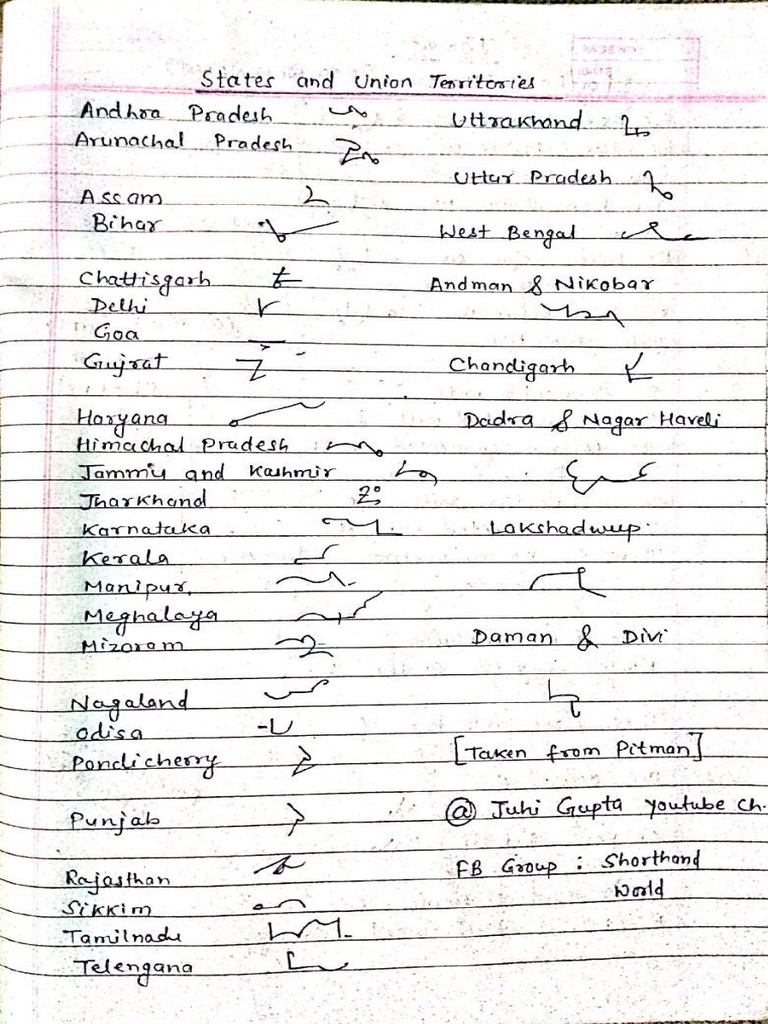 States and Union Territories
Andhra Pradesh
Arunachal Pradesh
Assam
Bihar
Chattisgarh
Delhi
Goa
Gujrat
Haryana
Himachal Pradesh
Jammu and Kashmir
Jharkhand
Karnataka
Kerala
Manipur
Meghalaya
Mizoram
Nagaland
Odisa
Pondicherry
Punjab
Rajasthan
Sikkim
Tamilnadu
Telengana
Uttrakhand
Uttar Pradesh
West Bengal
Andman & Nikobar
Chandigarh
Dadra & Nagar Haveli
Lakshadweep
Daman & Divi
[Taken from Pitman]
@ Juhi Gupta youtube ch.
FB Group : Shorthand
World